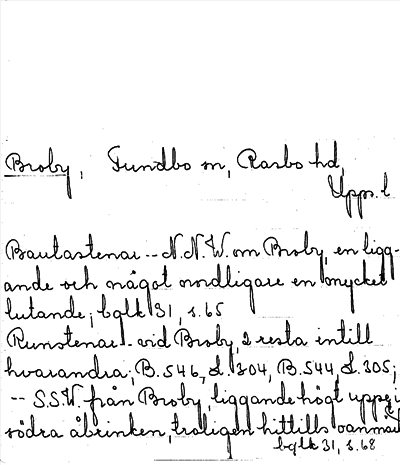 Broby, Fundbo sn, Rasbo hd,
Upps. l
Bautastenar -- N.N.W. om Broby, en ligg-
ande och något nordligare en mycket
lutande; bglk 31, s. 65
Runstenar - vid Broby, 2 resta intill
hvarandra; B. 546, L. 304, B. 544 L. 305;
-- S.S.W. från Broby, liggande högt uppe i
södra åbrinken, troligen hittills oanmält
bglk 31, s. 68